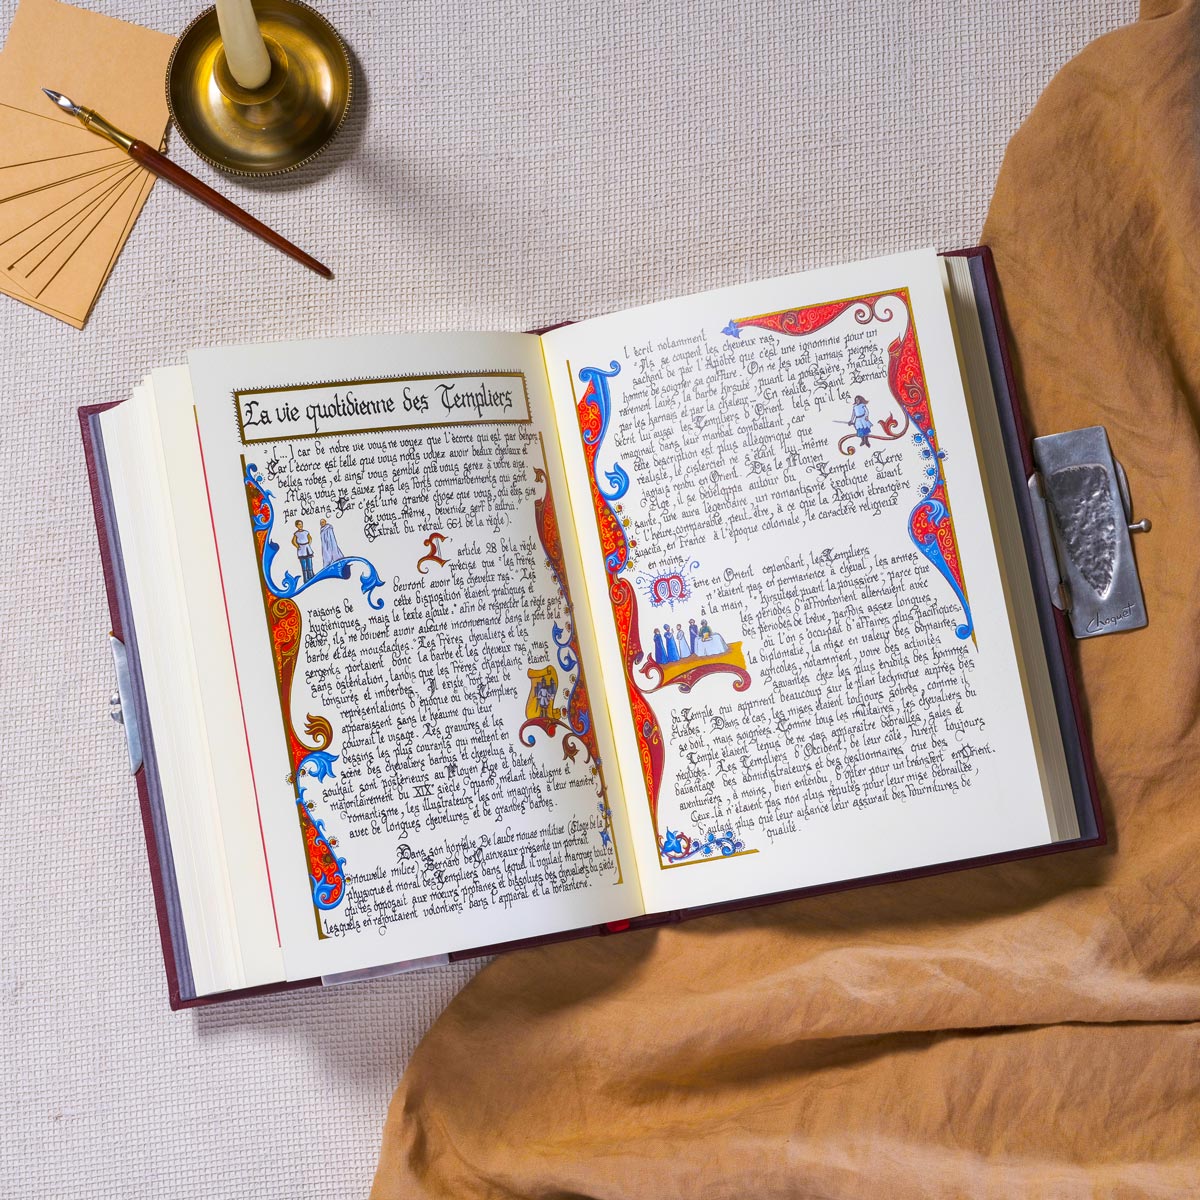 La vie quotidienne des Templiers
"[...] car de notre vie vous ne voyez que l'écorce qui est par dehors.
Car l'écorce est telle que vous nous voyez avoir beaux chevaux et
belles robes, et ainsi vous semble que vous serez à votre aise.
Mais vous ne savez pas les forts commandements qui sont
par dedans. Car c'est une grande chose que vous, qui êtes sire
de vous-même, deveniez serf d'autrui."
(Extrait du retrait 661 de la règle).
L'article 28 de la règle
précise que "les Frères
devront avoir les cheveux ras". "Les
raisons de cette disposition étaient pratiques et
hygiéniques, mais le texte ajoute: "afin de respecter la règle sans
dévier, ils ne doivent avoir aucune inconvenance dans le port de la
barbe et des moustaches." Les Frères chevaliers et les
sergents portaient donc la barbe et les cheveux ras, mais
sans ostentation, tandis que les Frères chapelains étaient
tonsurés et imberbes. Il existe fort peu de
représentations d'époque où des Templiers
apparaissent sans le heaume qui leur
couvrait le visage. Les gravures et les
dessins les plus courants qui mettent en
scène des chevaliers barbus et chevelus à
souhait sont postérieurs au Moyen Age et datent
majoritairement du XIXe siècle quand, mêlant idéalisme et
romantisme, les illustrateurs les ont imaginés à leur manière,
avec de longues chevelures et de grandes barbes.
Dans son homélie De laude novae militiae (Eloge de la
nouvelle milice) Bernard de Clairvaux présente un portrait
physique et moral des Templiers dans lequel il voulait marquer tout ce
qui les opposait aux moeurs profanes et dissolues des chevaliers du siècle,
lesquels en rajoutaient volontiers dans l'apparat et la forfanterie.
Il écrit notamment
"Ils se coupent les cheveux ras,
sachant de par l'Apôtre que c'est une ignominie pour un
homme de soigner sa coiffure. On ne les voit jamais peignés,
rarement lavés, la barbe hirsute, puant la poussière, maculés
par les harnais et par la chaleur..." En réalité, Saint Bernard
décrit lui aussi les Templiers d'Orient tels qu'il les
imaginait dans leur mandat combattant, car
cette description est plus allégorique que
réaliste, le cistercien ne s'étant lui-même
jamais rendu en Orient. Dès le Moyen
Age, il se développa autour du Temple en Terre
sainte, une aura légendaire, un romantisme exotique avant
l'heure, comparable, peut-être, à ce que la Légion étrangère
suscita, en France à l'époque coloniale, le caractère religieux
en moins.
Même en Orient cependant, les Templiers
n'étaient pas en permanence à cheval, les armes
à la main, "hirsutes et puant la poussière", parce que
les périodes d'affrontement alternaient avec
des périodes de trêve, parfois assez longues,
où l'on s'occupait d'affaires plus pacifiques:
la diplomatie, la mise en valeur des domaines
agricoles, notamment, voire des activités
savantes chez les plus érudits des hommes
du Temple qui apprirent beaucoup sur le plan technique auprès des
Arabes. Dans ce cas, les mises étaient toujours sobres, comme il
se doit, mais soignées. Comme tous les militaires, les chevaliers du
Temple étaient tenus de ne pas apparaître débraillés, sales et
négligés. Les Templiers d'Occident, de leur côté, furent toujours
davantage des administrateurs et des gestionnaires que des
aventuriers, à moins, bien entendu, d'opter pour un transfert en Orient.
Ceux-là n'étaient pas non plus réputés pour leur mise débraillée,
d'autant plus que leur aisance leur assurait des fournitures de
qualité.
Choquet